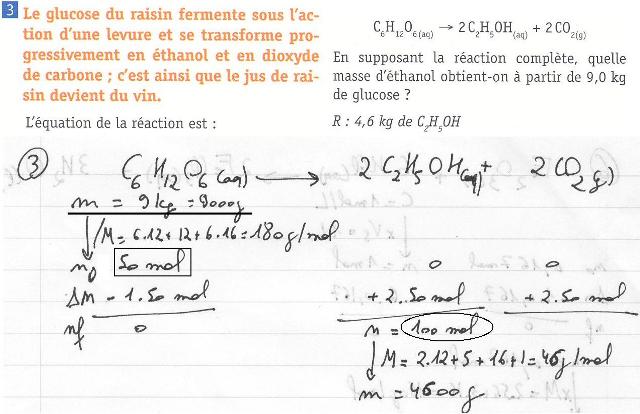 3 Le glucose du raisin fermente sous l'ac-
tion d'une levure et se transforme pro-
gressivement en éthanol et en dioxyde
de carbone ; c'est ainsi que le jus de rai-
sin devient du vin.
L'équation de la réaction est :
C₆H₁₂O₆(aq) → 2 C₂H₅OH(aq) + 2 CO₂(g)
En supposant la réaction complète, quelle
masse d'éthanol obtient-on à partir de 9,0 kg
de glucose ?
R : 4,6 kg de C₂H₅OH
③ C₆H₁₂O₆(aq) → 2 C₂H₅OH(aq) + 2 CO₂(g)
m = 9kg = 9000g
↓ /M = 6.12 + 12 + 6.16 = 180g/mol
n₀ 50 mol 0 0
Δn - 1.50 mol + 2.50 mol + 2.50 mol
nf 0 n = 100 mol
↓ M = 2.12 + 5 + 16 + 1 = 46g/mol
m = 4600g